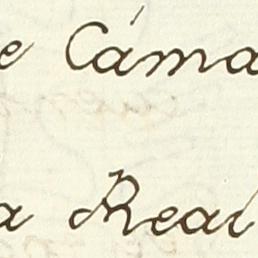 e Cáma
a Real